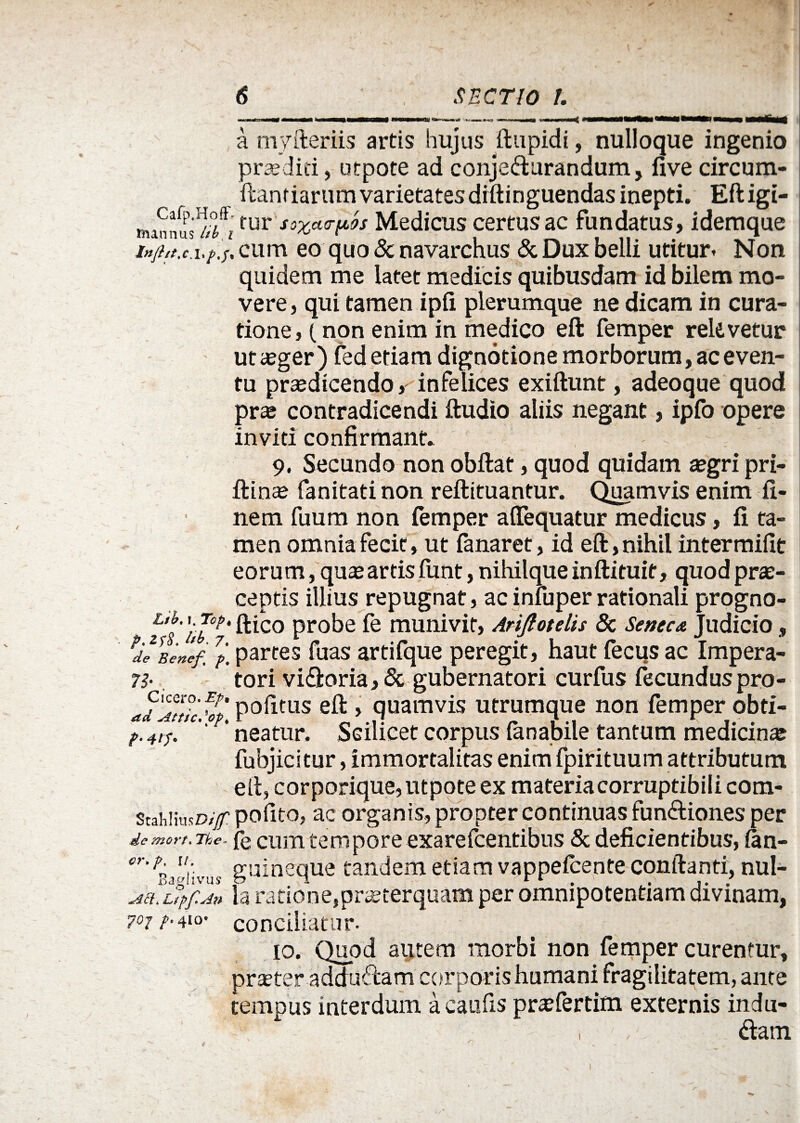 6 SECTIO I.
à myſteriis artis hujus ſtupidi, nulloque ingenio
præditi, utpote ad conjecturandum, ſive circum-
ſtantiarum varietates diſtinguendas inepti. Eſt igi-
Caſp. Hoff- tur ςοχασμὸς Medicus certus ac fundatus, idemque
mannus lib. 1
Inſtit.c.1.p.5. cum eo quo & navarchus & Dux belli utitur. Non
quidem me latet medicis quibusdam id bilem mo-
vere, qui tamen ipſi plerumque ne dicam in cura-
tione, (non enim in medico eſt ſemper relevetur
ut æger) ſed etiam dignotione morborum, ac even-
tu prædicendo, infelices exiſtunt, adeoque quod
præ contradicendi ſtudio aliis negant, ipſo opere
inviti confirmant.
9. Secundo non obſtat, quod quidam ægri pri-
ſtinæ ſanitati non reſtituantur. Quamvis enim fi-
nem ſuum non ſemper aſſequatur medicus, ſi ta-
men omnia fecit, ut ſanaret, id eſt, nihil intermiſit
eorum, quæ artis ſunt, nihilque inſtituit, quod præ-
ceptis illius repugnat, ac inſuper rationali progno-
Lib. 1. Top. ſtico probe ſe munivit, Ariſtotelis & Senecæ Judicio,
p. 258. lib. 7.
de Benef. p. partes ſuas artiſque peregit, haut ſecus ac Impera-
73. tori victoria, & gubernatori curſus ſecundus pro-
Cicero. Ep. poſitus eſt, quamvis utrumque non ſemper obti-
ad Attic. op.
p. 415. neatur. Scilicet corpus ſanabile tantum medicinæ
ſubjicitur, immortalitas enim ſpirituum attributum
eſt, corporique, utpote ex materia corruptibili com-
Stahlius Diſſ. poſito, ac organis, propter continuas functiones per
de mort. The- ſe cum tempore exareſcentibus & deficientibus, ſan-
or. p. 11. guineque tandem etiam vappeſcente conſtanti, nul-
Baglivus
Act. Lipſ. An la ratione, præterquam per omnipotentiam divinam,
707 p. 410. conciliatur.
10. Quod autem morbi non ſemper curentur,
præter adductam corporis humani fragilitatem, ante
tempus interdum à cauſis præſertim externis indu-
ctam